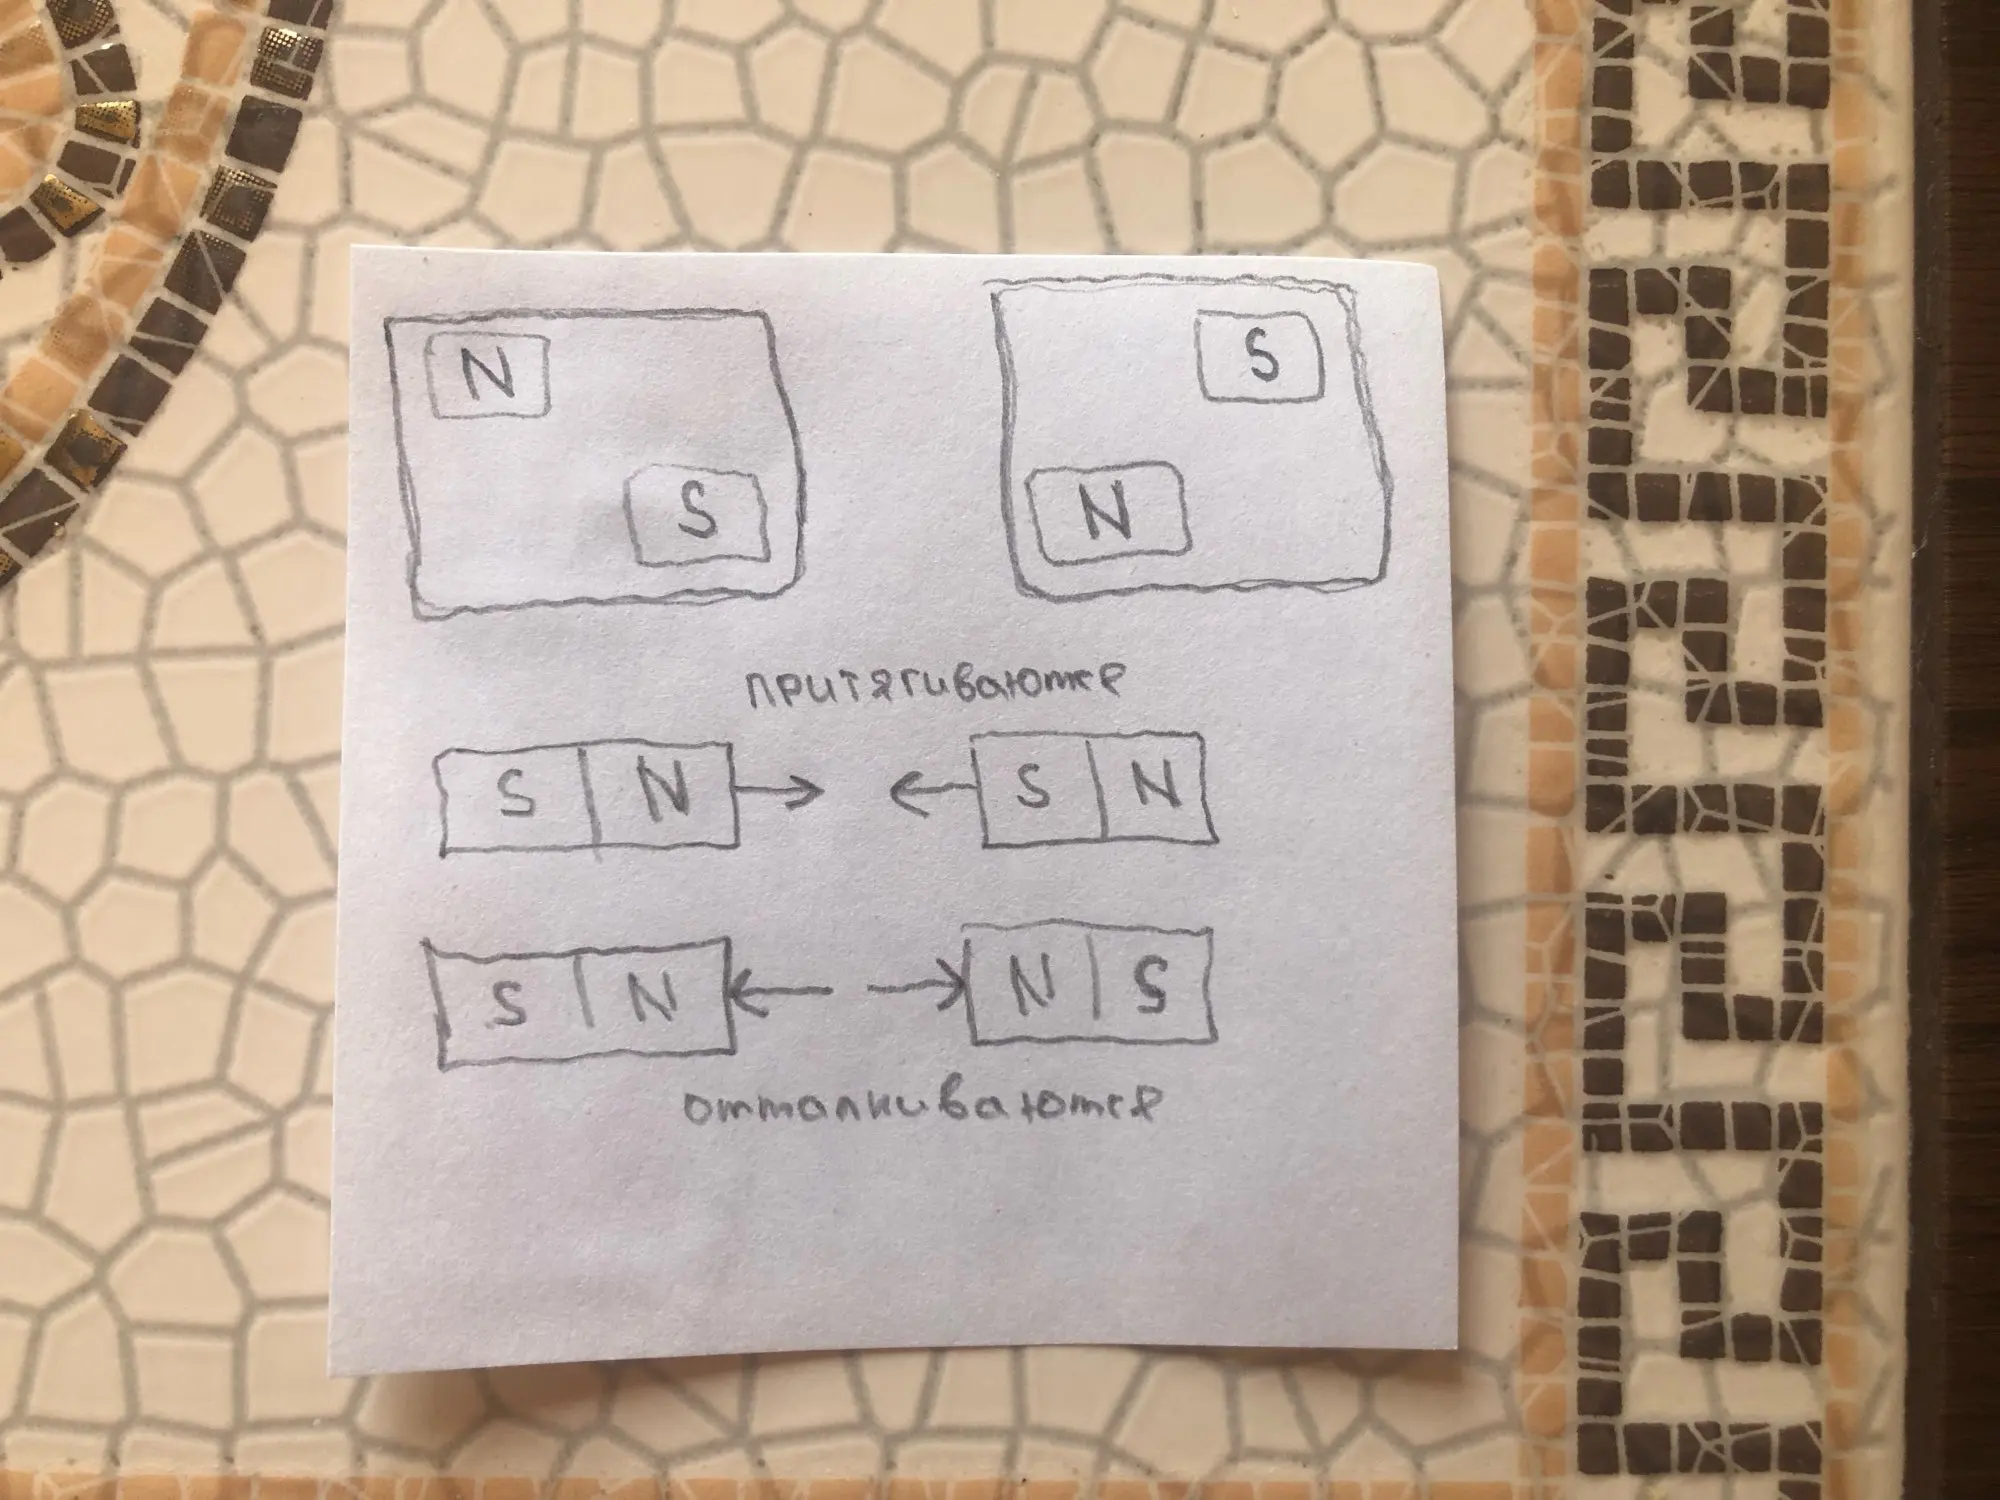 N S
S N
притягиваются
S N S N
S N N S
отталкиваются